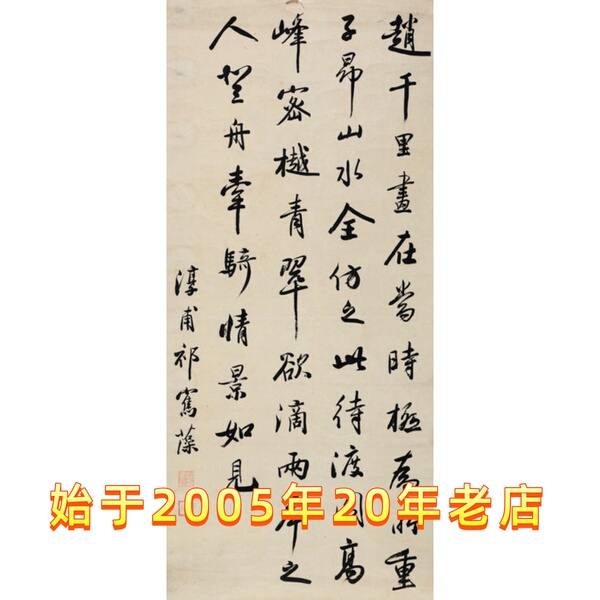 趙千里畫在當時極為所重
子昂山水全仿之此待渡圖高
峰密樾青翠欲滴兩岸之
人登舟牽騎情景如見
淳甫祁寯藻
始于2005年20年老店